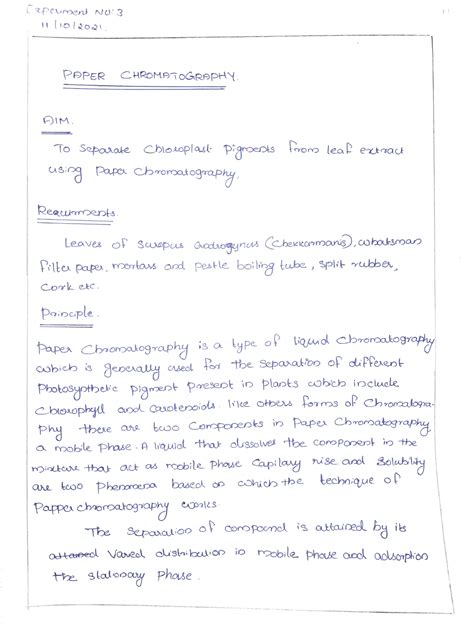 Experiment No: 3
11/10/2021.
PAPER CHROMATOGRAPHY.
AIM.
To Separate Chloroplast pigments from leaf extract
using Paper Chromatography.
Requirments
Leaves of Suropus androgynus (Chekkurmanis), whatsman
filter paper, mortars and pestle boiling tube, split rubber,
Cork etc.
Principle.
Paper Chromatography is a type of liquid Chromatography
which is generally used for the Separation of different
Photosynthetic pigment Present in plants which include
Chlorophyll and Carotenoids. like others forms of Chromatogra-
phy there are two Components in Paper Chromatography
a mobile phase. A liquid that dissolves the component in the
mixture that act as mobile phase Capilary rise and Solubility
are two phenomena based on which the technique of
Papper chromatography works.
The Separation of compound is attained by its
attained Vared distribution in mobile phase and adsorption
the stationary Phase.